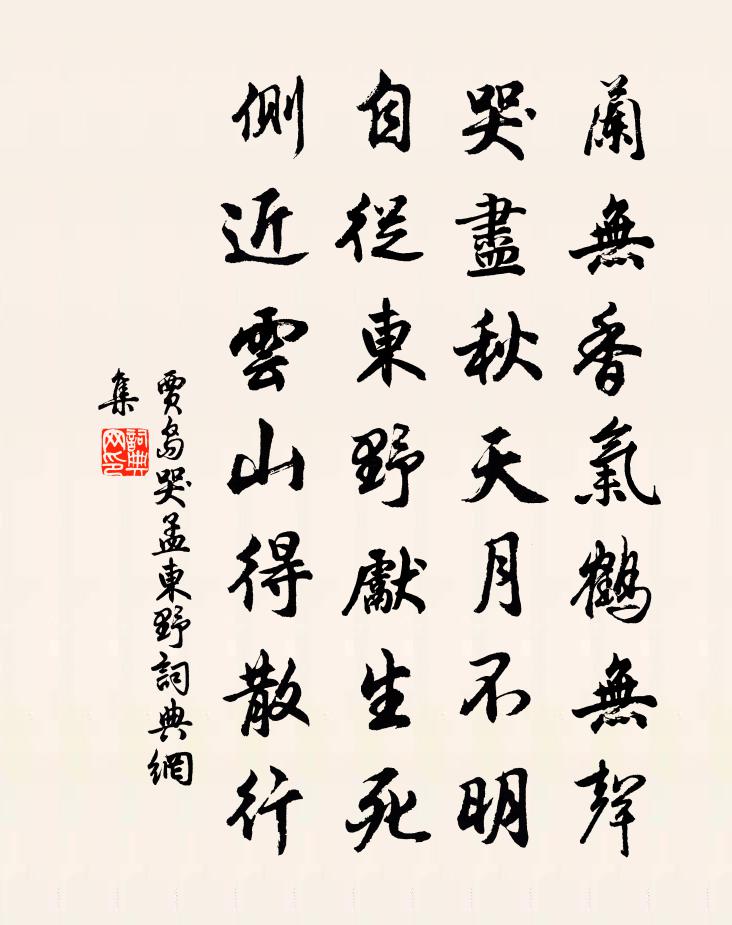 蘭無香氣鶴無聲
哭盡秋天月不明
自從東野獻生死
側近雲山得散行
賈島哭孟東野詞典網
集
詞典
网印